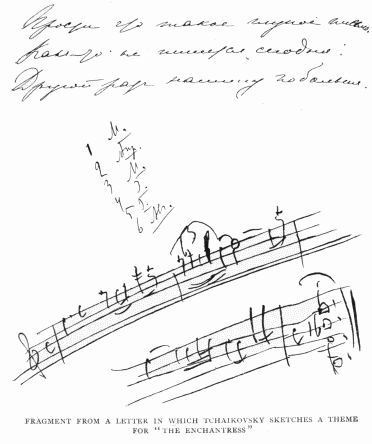 Прости что такое глупое письмо,
Как-то не пишется сегодня!
Другой раз напишу побольше.
1 М.
2
3 М.
4
5
6
3
FRAGMENT FROM A LETTER IN WHICH TCHAIKOVSKY SKETCHES A THEME
FOR "THE ENCHANTRESS"